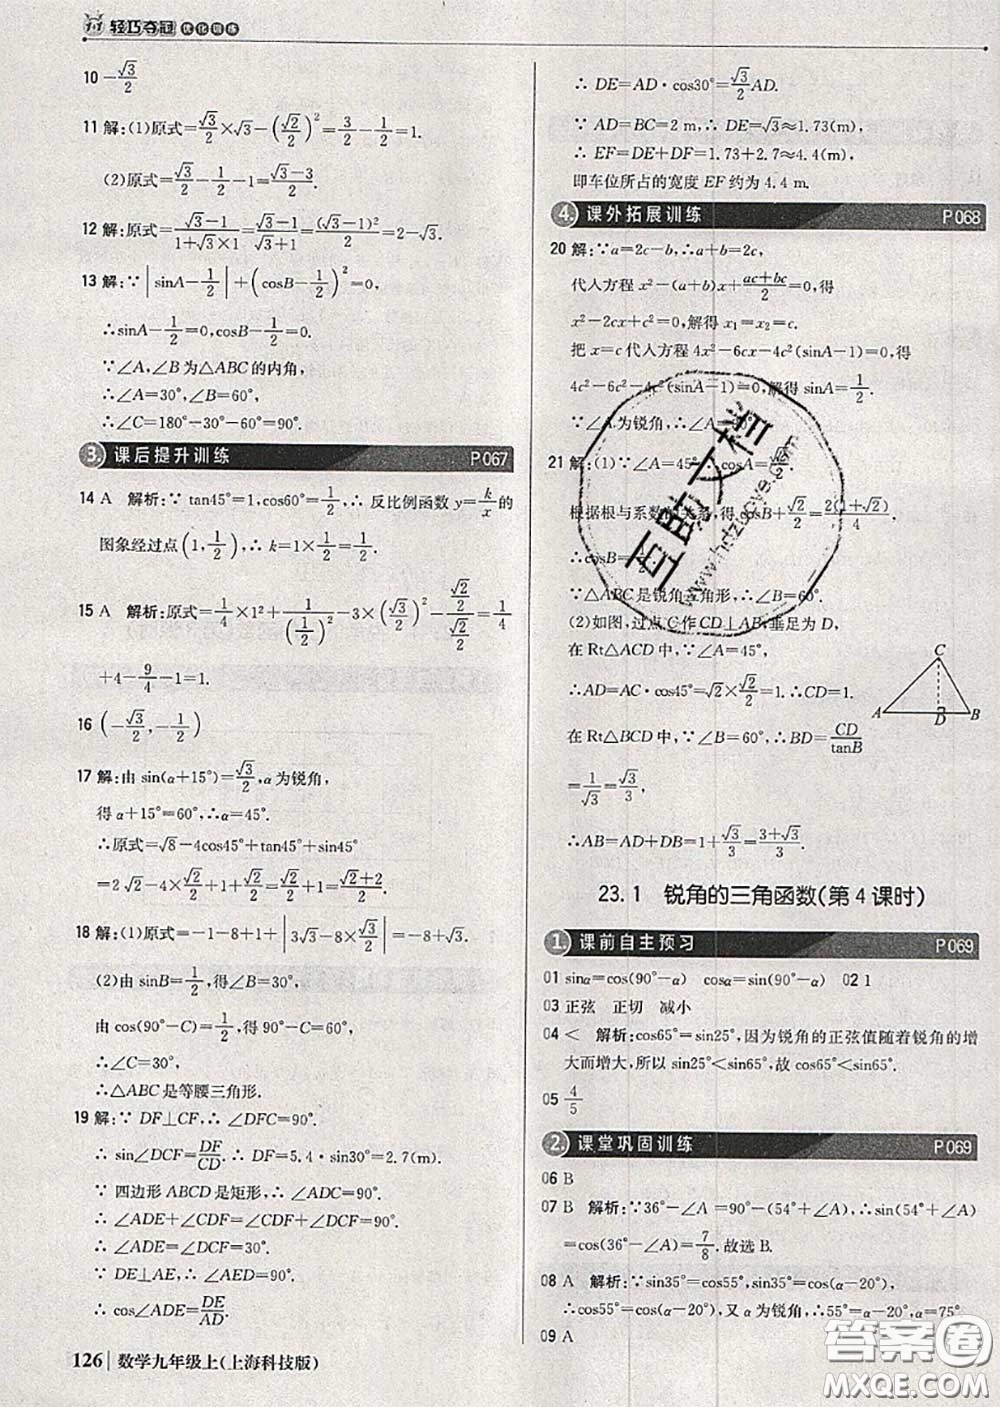 轻巧夺冠 优化训练
10 -√3/2
11 解:(1)原式=√3/2×√3-(√2/2)²=3/2-1/2=1.
(2)原式=√3/2-1/2-1=(√3-3)/2.
12 解:原式=(√3-1)/(1+√3×1)=(√3-1)/(√3+1)=(√3-1)²/2=2-√3.
13 解:∵|sinA-1/2|+(cosB-1/2)²=0,
∴sinA-1/2=0,cosB-1/2=0.
∵∠A,∠B为△ABC的内角,
∴∠A=30°,∠B=60°,
∴∠C=180°-30°-60°=90°.
3. 课后提升训练 P067
14 A 解析:∵tan45°=1,cos60°=1/2,∴反比例函数y=k/x的
图象经过点(1,1/2),∴k=1×1/2=1/2.
15 A 解析:原式=1/4×1²+1/(1/2)²-3×(√3/2)²-(√2/2)/(√2/2)=1/4
+4-9/4-1=1.
16 (-√3/2,-1/2)
17 解:由sin(α+15°)=√3/2,α为锐角,
得α+15°=60°,∴α=45°.
∴原式=√8-4cos45°+tan45°+sin45°
=2√2-4×√2/2+1+√2/2=√2/2+1=(√2+2)/2.
18 解:(1)原式=-1-8+1+|3√3-8×√3/2|=-8+√3.
(2)由sinB=1/2,得∠B=30°,
由cos(90°-C)=1/2,得90°-∠C=60°,
∴∠C=30°,
∴△ABC是等腰三角形.
19 解:∵DF⊥CF,∴∠DFC=90°.
∴sin∠DCF=DF/CD.∴DF=5.4·sin30°=2.7(m).
∵四边形ABCD是矩形,∴∠ADC=90°.
∴∠ADE+∠CDF=∠CDF+∠DCF=90°.
∴∠ADE=∠DCF=30°.
∵DE⊥AE,∴∠AED=90°.
∴cos∠ADE=DE/AD.
∴DE=AD·cos30°=√3/2AD.
∵AD=BC=2 m,∴DE=√3≈1.73(m).
∴EF=DE+DF=1.73+2.7≈4.4(m),
即车位所占的宽度EF约为4.4 m.
4. 课外拓展训练 P068
20 解:∵a=2c-b,∴a+b=2c,
代入方程x²-(a+b)x+(ac+bc)/2=0,得
x²-2cx+c²=0,解得x₁=x₂=c.
把x=c代入方程4x²-6cx-4c²(sinA-1)=0,得
4c²-6c²-4c²(sinA-1)=0,解得sinA=1/2.
∵∠A为锐角,∴∠A=30°.
21 解:(1)∵∠A=45°,∴cosA=√2/2.
根据根与系数的关系,得cosB+√2/2=2(1+√2)/4.
∴cosB=1/2.
∵△ABC是锐角三角形,∴∠B=60°.
(2)如图,过点C作CD⊥AB,垂足为D,
在Rt△ACD中,∵∠A=45°,
∴AD=AC·cos45°=√2×√2/2=1.∴CD=1.
在Rt△BCD中,∵∠B=60°,∴BD=CD/tanB
=1/√3=√3/3.
C
A D B
∴AB=AD+DB=1+√3/3=(3+√3)/3.
23.1 锐角的三角函数(第4课时)
1. 课前自主预习 P069
01 sinα=cos(90°-α) cosα=sin(90°-α) 02 1
03 正弦 正切 减小
04 < 解析:cos65°=sin25°,因为锐角的正弦值随着锐角的增
大而增大,所以sin25°<sin65°,故cos65°<sin65°.
05 4/5
2. 课堂巩固训练 P069
06 B
07 B 解析:∵36°-∠A=90°-(54°+∠A),∴sin(54°+∠A)
=cos(36°-∠A)=7/8.故选B.
08 A 解析:∵sin35°=cos55°,sin35°=cos(α-20°),
∴cos55°=cos(α-20°),又α为锐角,∴55°=α-20°,α=75°.
09 A
126 数学九年级上(上海科技版)
互助文档
www.hdzuoye.com
答案圈
MXQE.COM